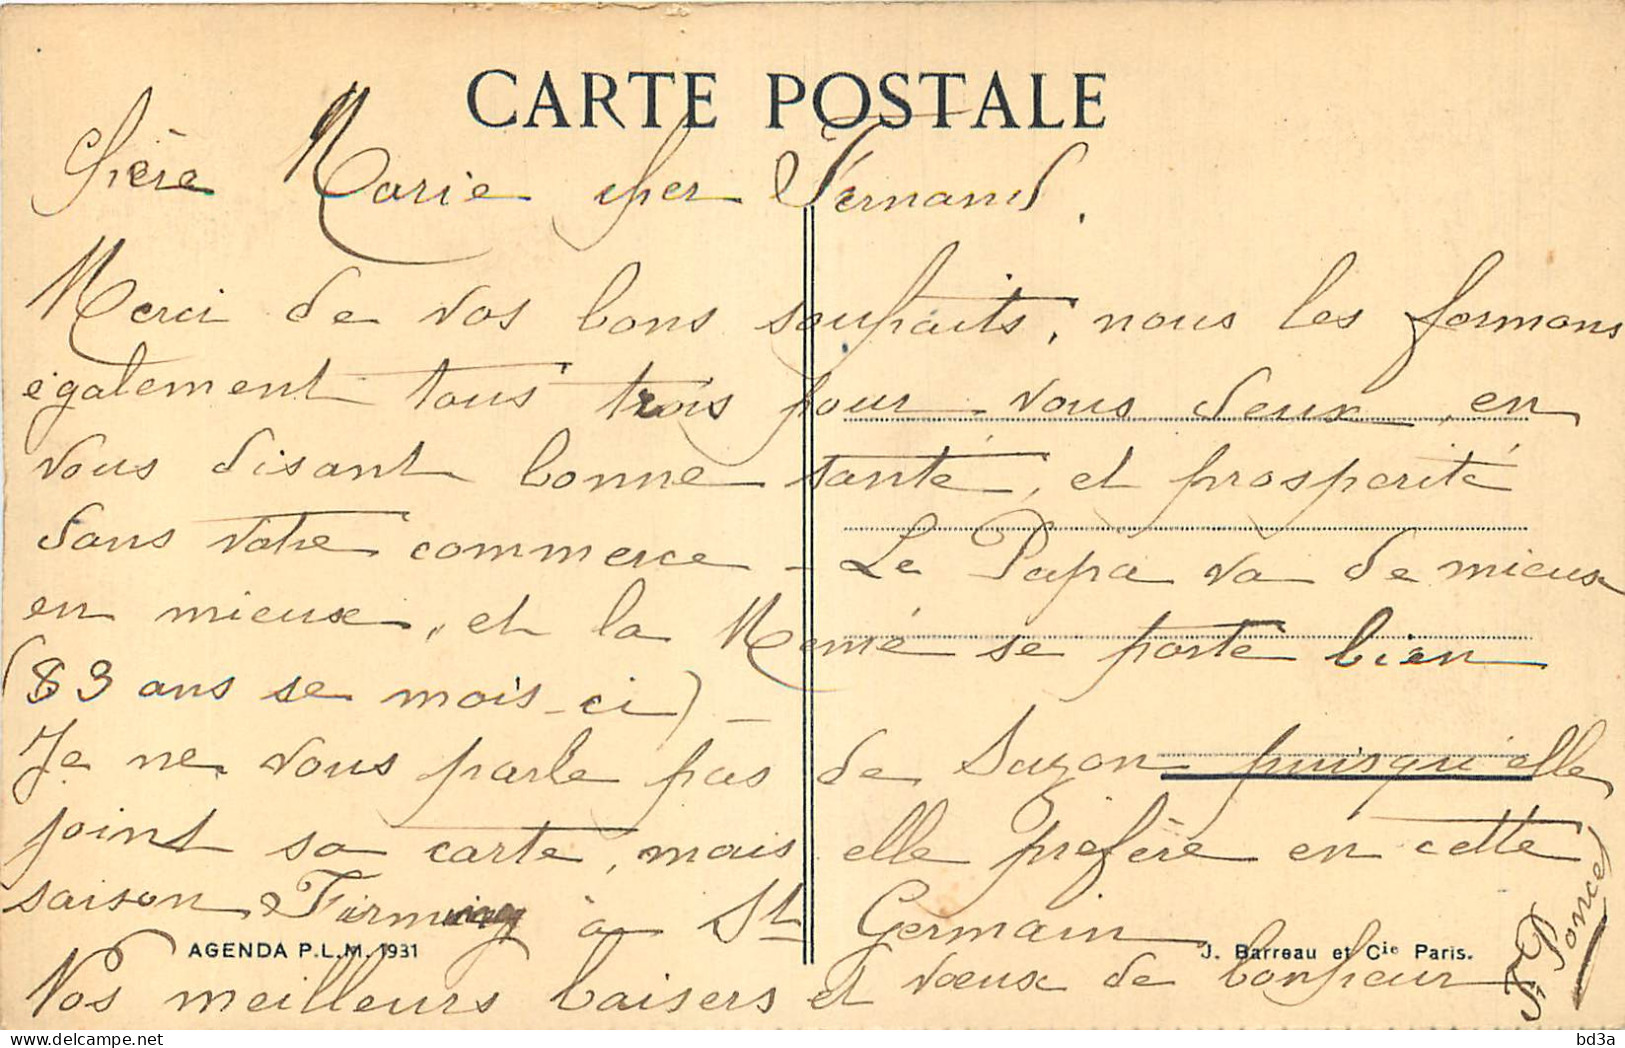 CARTE POSTALE
Chère Marie cher Fernand.
Merci de vos bons souhaits, nous les formons
également tous trois pour vous deux, en
vous disant bonne santé, et prosperité
dans votre commerce - Le Papa va de mieux
en mieux, et la Memé se porte bien
(83 ans se mois-ci) -
Je ne vous parle pas de Suzon puisqu'elle
joint sa carte, mais elle préfère en cette
saison Firminy à St Germain
AGENDA P.L.M. 1931
J. Barreau et Cie Paris.
Nos meilleurs baisers et vœux de bonheur
F. Ponce
bd3a